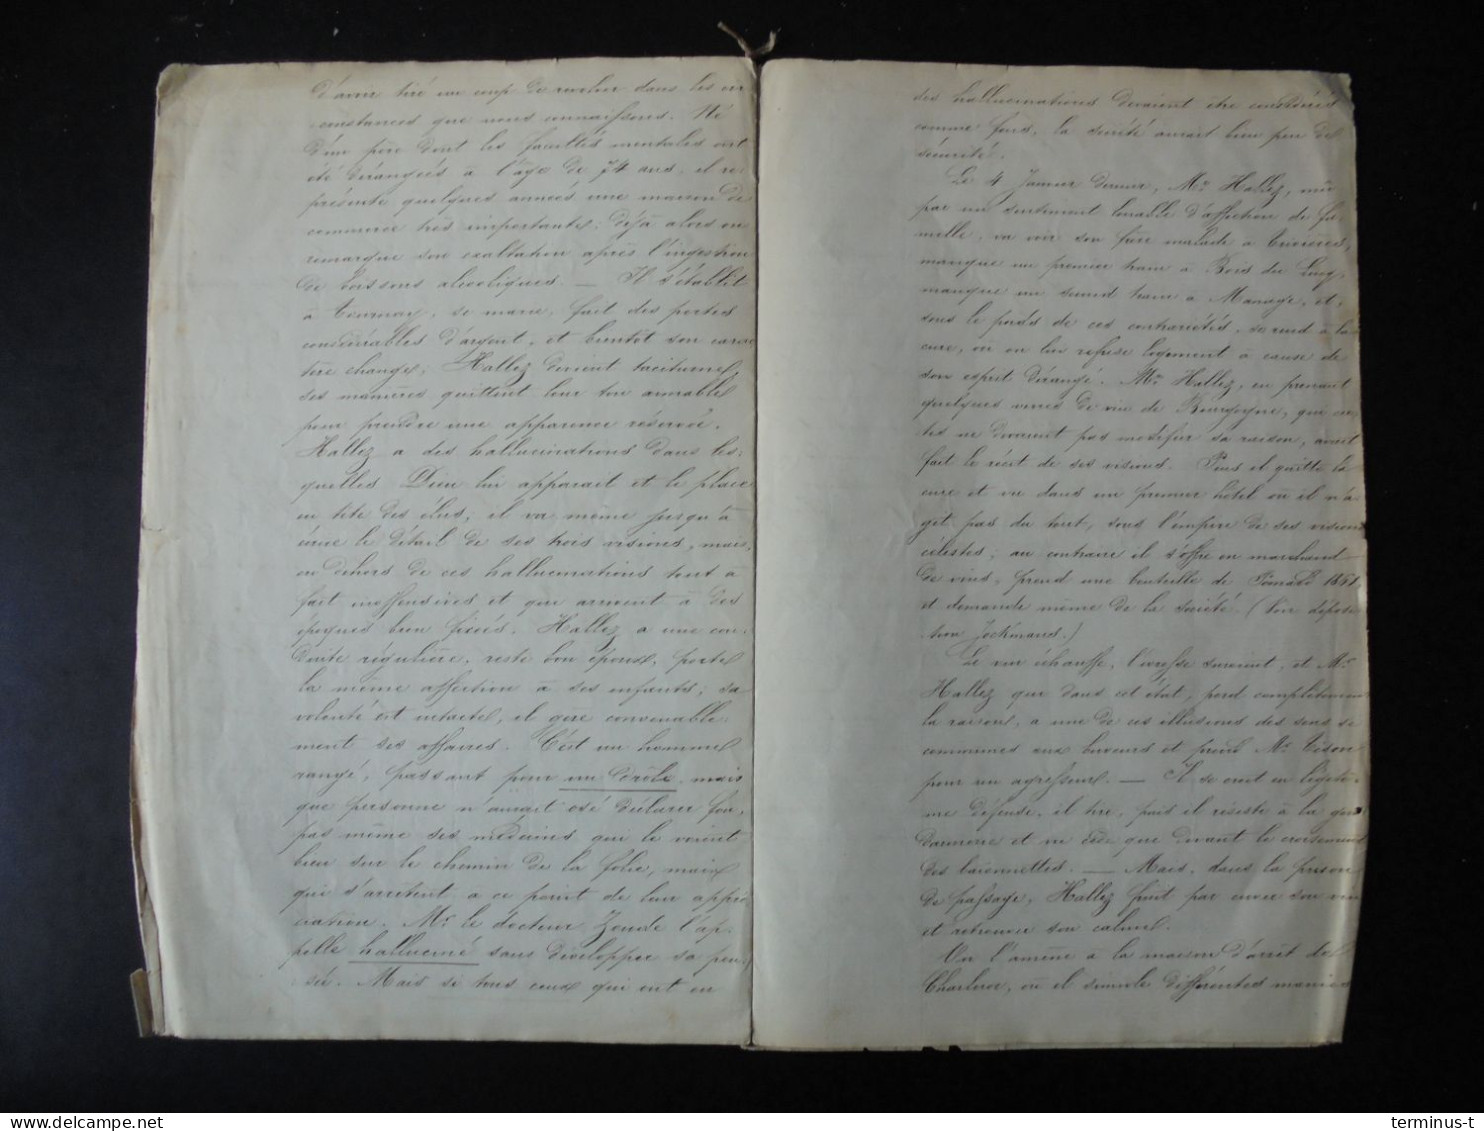 d'avoir tiré un coup de revolver dans les cir
constances que nous connaissons. Né
d'un père dont les facultés mentales ont
été dérangées à l'âge de 74 ans, il re
présente quelques années une maison de
commerce très importante. Déjà alors on
remarque son exaltation après l'ingestion
de boissons alcooliques. — Il s'établit
à Tournay, se marie, fait des pertes
considérables d'argent, et bientôt son carac
tère change, Hallez devient taciturne,
ses manières quittent leur ton aimable
pour prendre une apparence réservée.
Hallez a des hallucinations dans les-
quelles Dieu lui apparait et le place
en tête des élus, il va même jusqu'à
écrire le détail de ses trois visions, mais,
en dehors de ces hallucinations tout à
fait inoffensives et qui arrivent à des
époques bien fixées, Hallez a une con-
duite régulière, reste bon époux, porte
la même affection à ses enfants; sa
volonté est intacte, il gère convenable-
ment ses affaires. C'est un homme
rangé, passant pour un drôle, mais
que personne n'aurait osé déclarer fou,
pas même ses médecins qui le voient
bien sur le chemin de la folie, mais
qui s'arrêtent à ce point de leur appré
ciation. Mr le docteur Zoude l'ap-
pelle halluciné sans développer sa pen-
sée. Mais si tous ceux qui ont eu
des hallucinations devaient être considérés
comme fous, la société aurait bien peu de
sécurité.
Le 4 Janvier dernier, Mr Hallez, mû
par un sentiment louable d'affection de fa-
mille, va voir son frère malade à Trivières,
manque un premier train à Bois du Luc,
manque un second train à Manage, et,
sous le poids de ces contrariétés, se rend à la
cure, où on lui refuse logement à cause de
son esprit dérangé. Mr Hallez, en prenant
quelques verres de vin de Bourgogne, qui cer
tes ne devaient pas modifier sa raison, avait
fait le récit de ses visions. Puis il quitte la
cure et va dans un premier hôtel où il n'a
git pas du tout, sous l'empire de ses visions
célestes; au contraire il s'offre en marchand
de vins, prend une bouteille de Pomard 1861
et demande même de la société. (Voir déposi
tion Jockmans.)
Le vin échauffe, l'ivresse survient, et Mr
Hallez qui dans cet état, perd complètement
la raison, a une de ces illusions des sens si
communes aux buveurs et prend Mr Tison
pour un agresseur. — Il se croit en légiti-
me défense, il tire, puis il résiste à la gen
darmerie et ne cède que devant le croisement
des baïonnettes. — Mais, dans la prison
de passage, Hallez finit par cuver son vin
et retrouver son calme.
On l'amène à la maison d'arrêt de
Charleroi, où il simule différentes manies
terminus-t